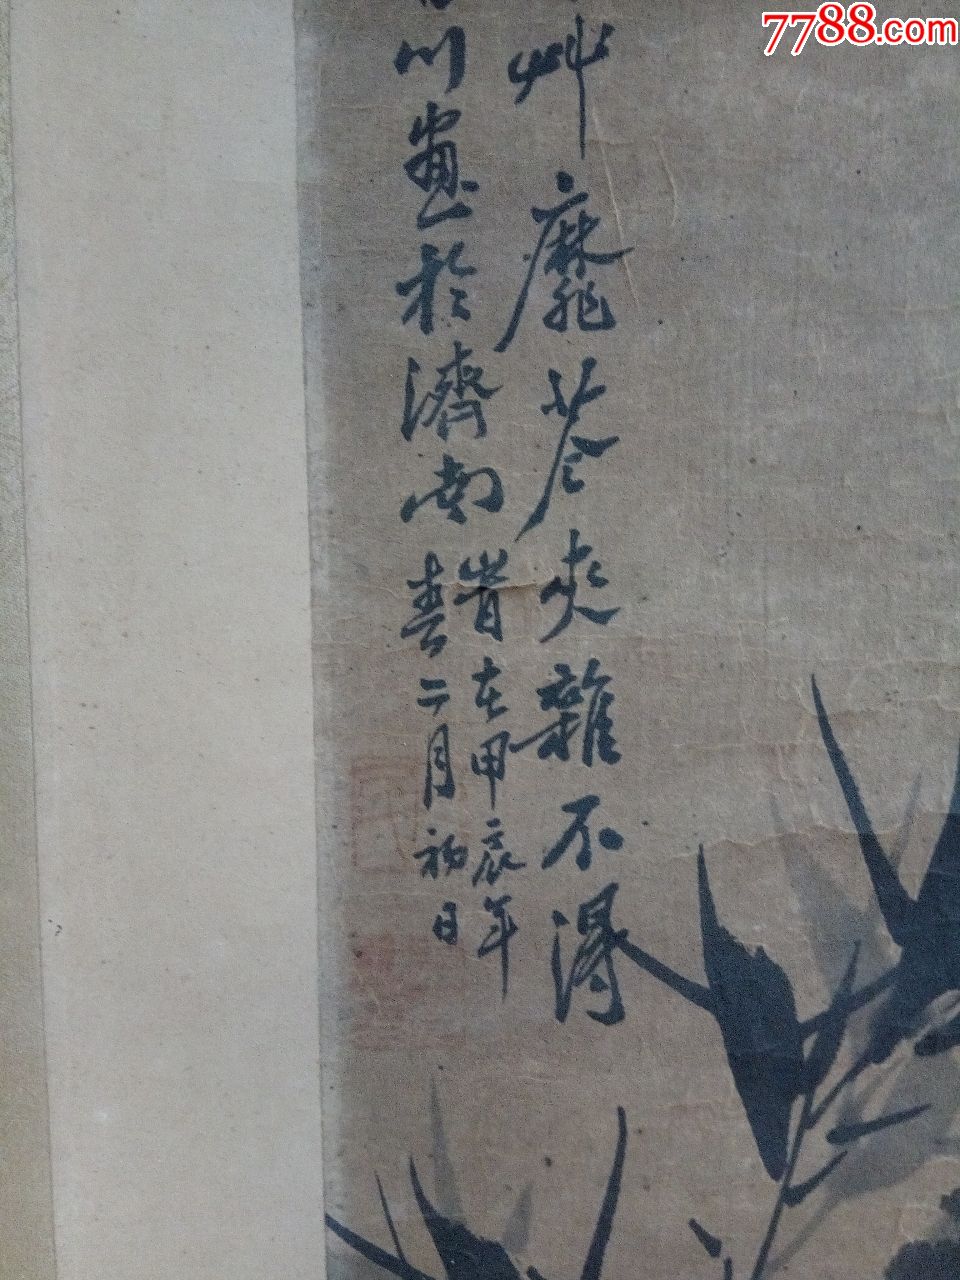 7788.com
艸靡荅夾雜不得
川畫於濟南
旹在甲辰年
春二月初日